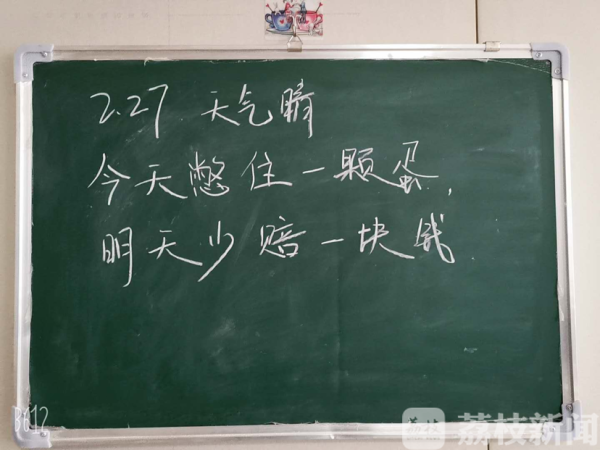 2.27 天气晴
今天憋住一颗蛋,
明天少赔一块钱
B612
荔枝 荔枝新闻